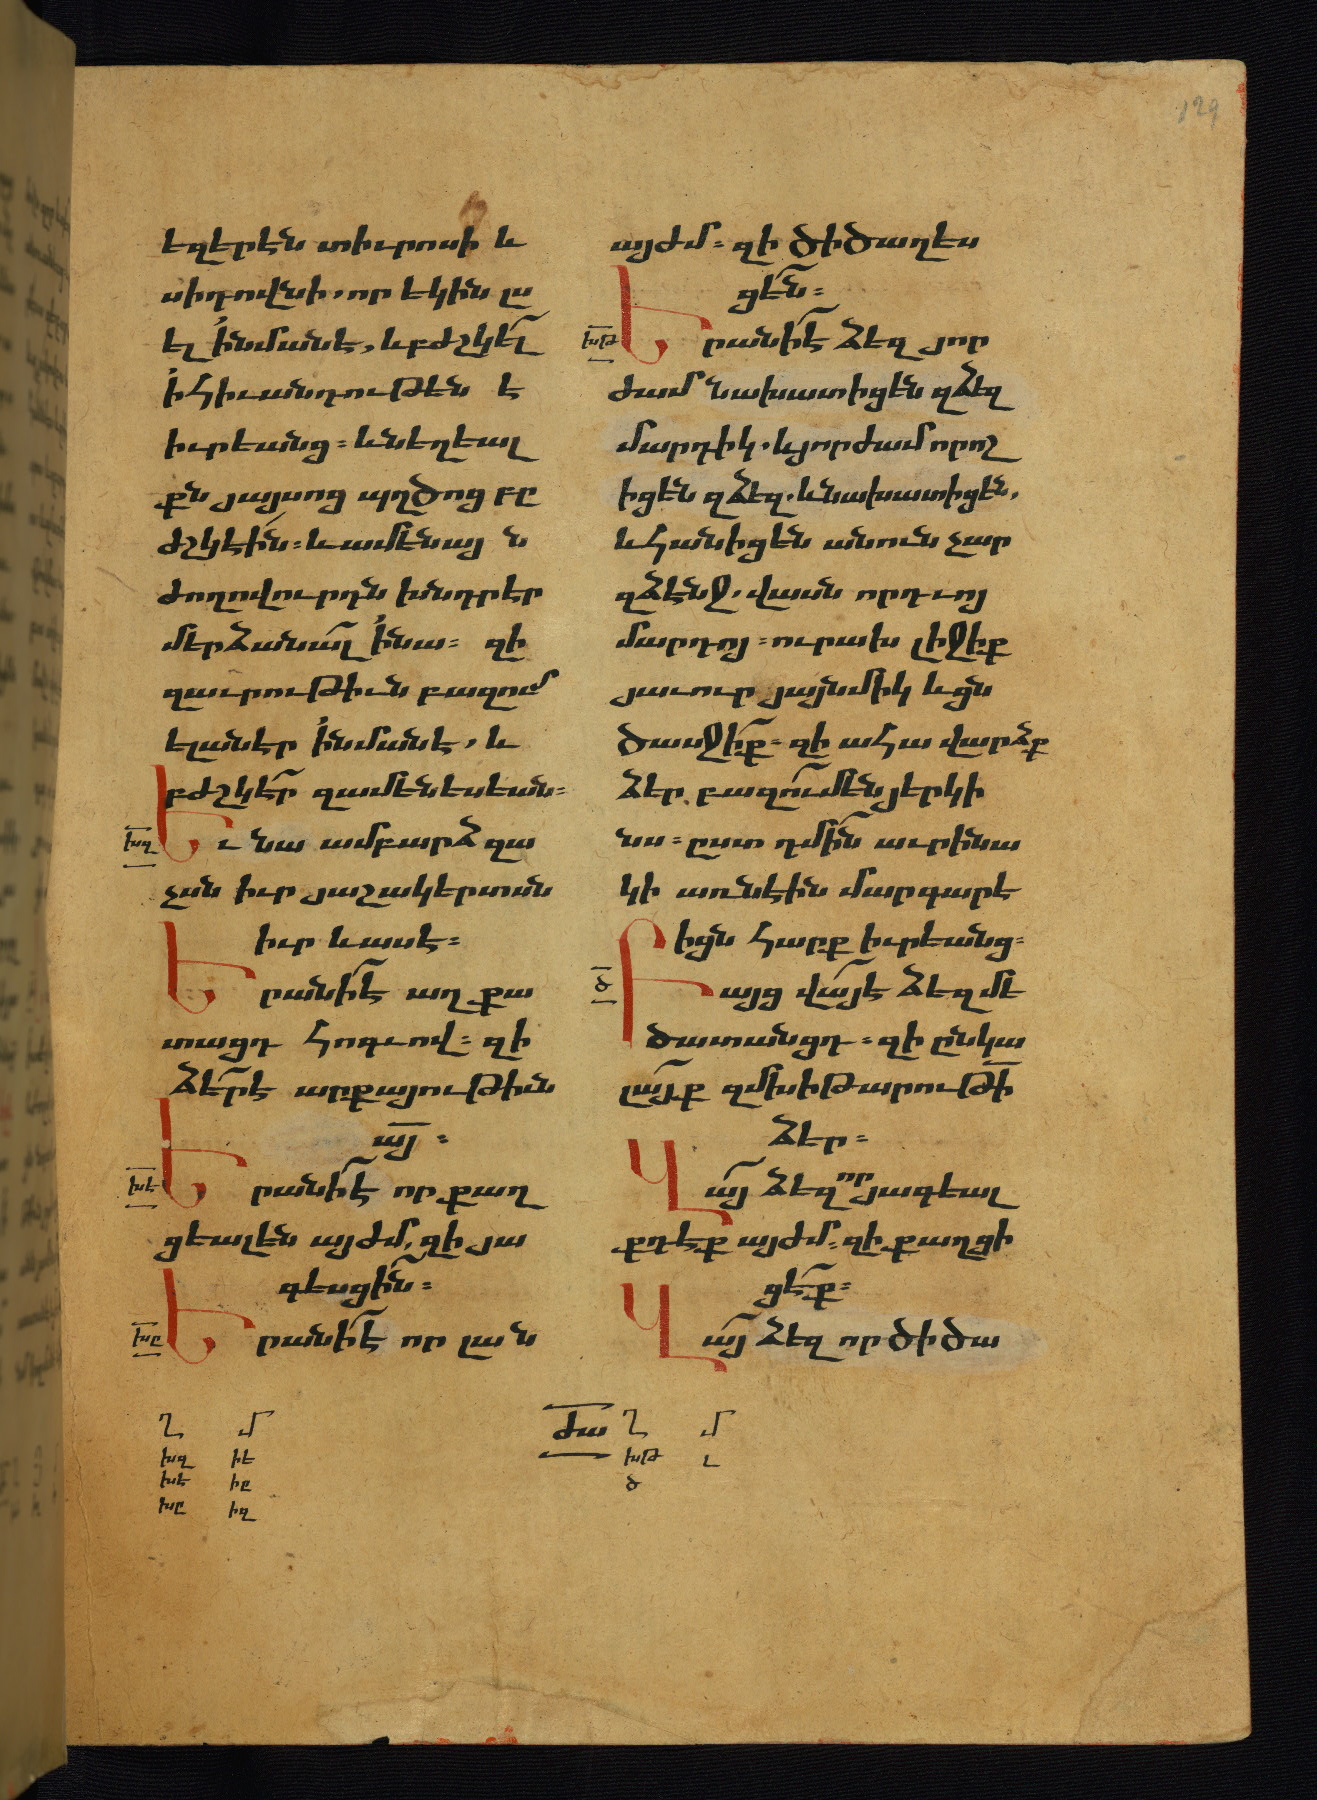 129
եզերէն տիւրոսի և
սիդովնի, որ եկին լս
ել ՚ինմանէ, և բժշկել
՚ի հիւանդութեն է
իւրեանց։ և նեղեալ
քն յայսոց պղծոց բը
ժշկէին։ և ամենայ ն
ժողովուրդն խնդրէր
մերձանալ ՚ինա։ զի
զաւրութիւն բազում
ելանէր ՚ինմանէ, և
բժշկէր զամենեսեան։
խզ
Եւ նա ամբարձ զա
չսն իւր յաշակերտսն
իւր և ասէ։
Երանի է աղքա
տացդ հոգւով։ զի
ձեր է արքայութիւն
այ։
խէ
Երանի է որ քաղ
ցեալ են այժմ, զի յա
գեսցին։
խը
Երանի է որ լա ն
այժմ։ զի ծիծաղես
ցեն։
խթ
Երանի է ձեզ յոր
ժամ նախատիցեն զձեզ
մարդիկ. և յորժամ որոշ
իցեն զձեզ. և նախատիցեն,
և հանիցեն անուն չար
զձենջ, վասն որդւոյ
մարդոյ։ ուրախ լիջիք
յաւուր յայնմիկ և ցն
ծասջիք։ զի ահա վարձք
ձեր բազում են յերկի
նս։ ըստ դմին աւրինա
կի առնէին մարգարէ
իցն հարք իւրեանց։
ծ
Բայց վայ է ձեզ մե
ծատանցդ։ զի ընկա
լայք զմխիթարութի
ձեր։
Վայ ձեզ որ յագեալ
քդ էք այժմ։ զի քաղցի
ցէք։
Վայ ձեզ որ ծիծա
Ղ Մ
խզ իէ
խէ իը
խը իզ
ժա Ղ Մ
խթ լ
ծ